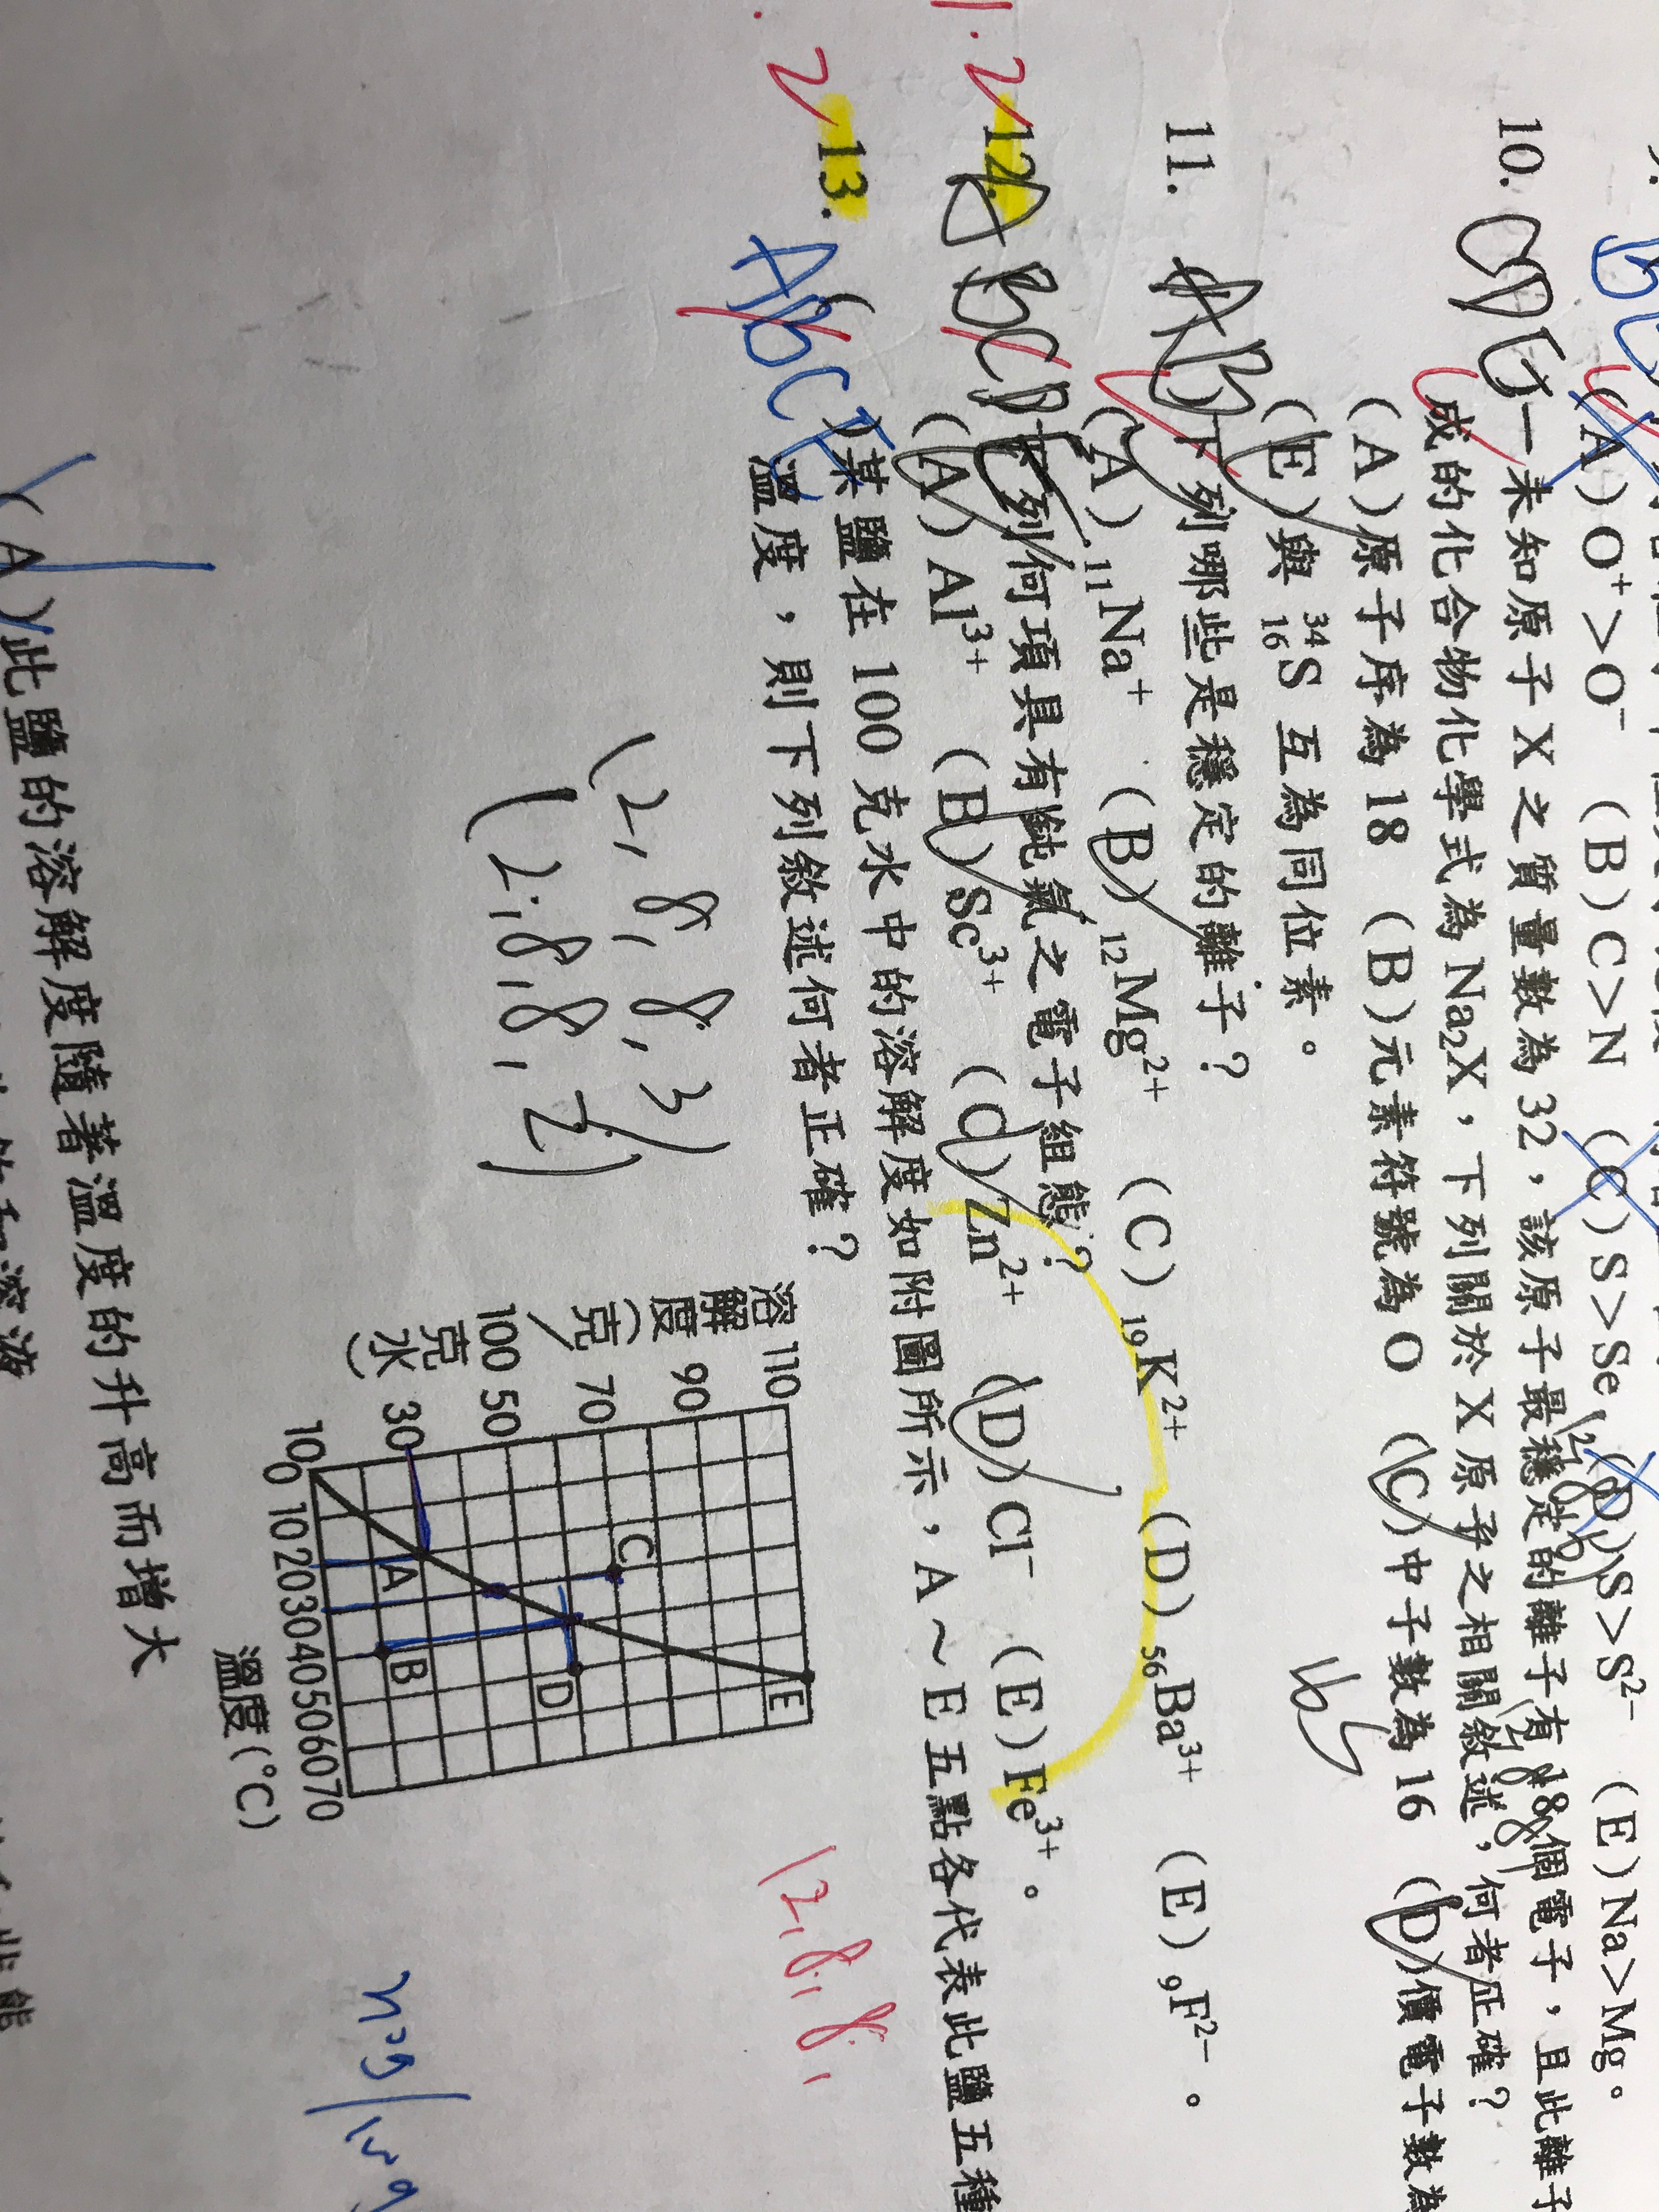 (A) O⁺>O⁻ (B) C>N (C) S>Se (D) S>S²⁻ (E) Na>Mg。
10. CDE 一未知原子 X 之質量數為 32，該原子最穩定的離子有 18 個電子，且此離子
成的化合物化學式為 Na₂X，下列關於 X 原子之相關敘述，何者正確？
(A)原子序為 18 (B)元素符號為 O (C)中子數為 16 (D)價電子數為
(E)與 ³⁴₁₆S 互為同位素。
11. AB 下列哪些是穩定的離子？
(A) ₁₁Na⁺ (B) ₁₂Mg²⁺ (C) ₁₉K²⁺ (D) ₅₆Ba³⁺ (E) ₉F²⁻。
12. ABCD 下列何項具有鈍氣之電子組態？
(A) Al³⁺ (B) Sc³⁺ (C) Zn²⁺ (D) Cl⁻ (E) Fe³⁺。
13. ( ABCE )某鹽在 100 克水中的溶解度如附圖所示，A～E 五點各代表此鹽五種
溫度，則下列敘述何者正確？
(2,8,8,3)
(2,8,8,2)
(2,8,8,
溶解度(克/100克水)
110
90
70
50
30
10
0 10 20 30 40 50 60 70
溫度(℃)
A
B
C
D
E
(A)此鹽的溶解度隨著溫度的升高而增大